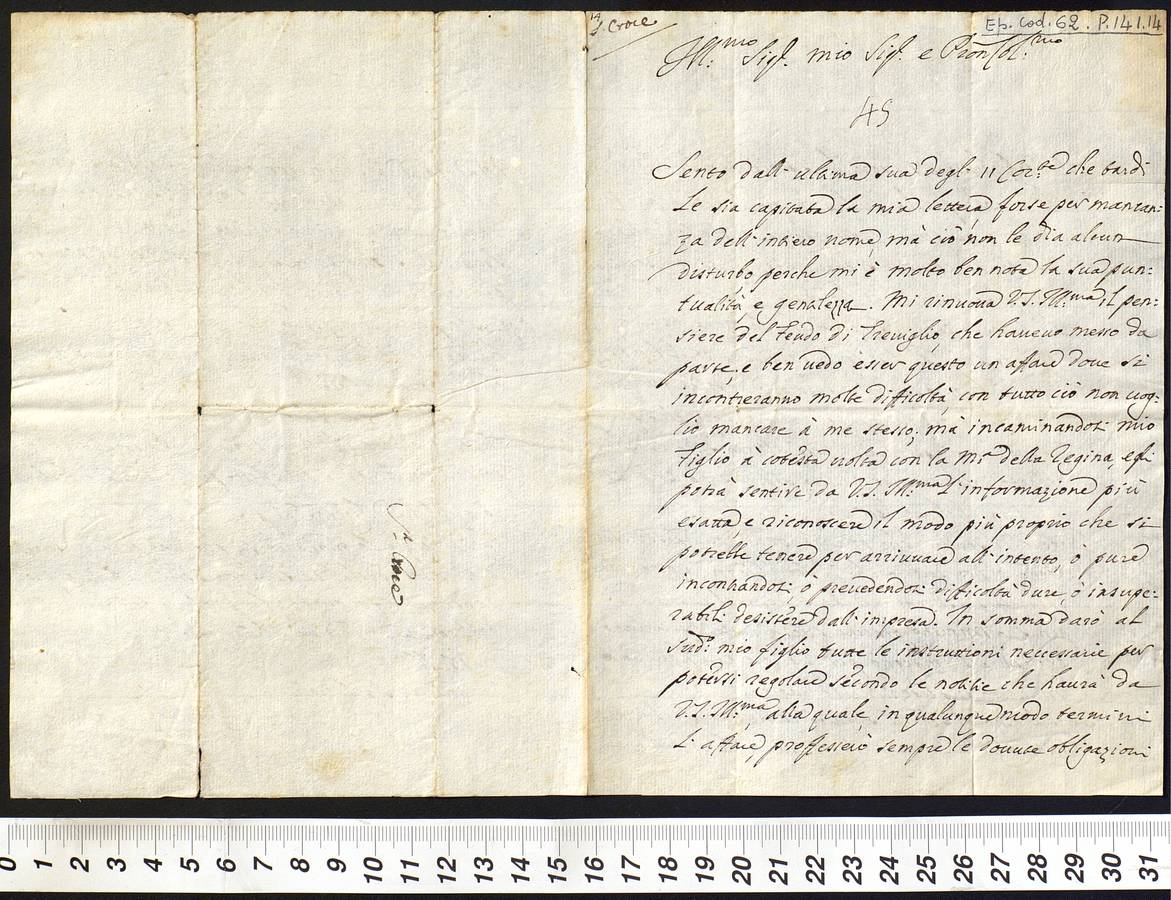 S. Croce
14
S. Croce
Ep. Cod. 62. P. 141.14
Ill.mo Sig.r mio Sig.r e Pron Col.mo
45
Sento dall' ultima sua degl' 11 Cor.te che tardi
Le sia capitata la mia lettera, forse per mancan:
za dell' intiero nome, mà ciò non le dia alcun
disturbo perche mi è molto ben nota la sua pun:
tualità, e gentilezza. Mi rinuova V.S. Ill.ma il pen:
siere del feudo di Treviglio, che havevo messo da
parte, e ben vedo esser questo un affare dove si
incontreranno molte difficoltà, con tutto ciò non vog:
lio mancare à me stesso, mà incaminandosi mio
figlio à cotesta volta con la M.tà della Regina, egli
potrà sentire da V.S. Ill.ma l' informazione più
esatta, e riconoscere il modo più proprio che si
potrebbe tenere per arrivare all' intento, ò pure
incontrandosi, ò prevedendosi difficoltà dure, ò insupe:
rabili desistere dall' impresa. In somma darò al
sud.o mio figlio tutte le instruttioni necessarie per
potersi regolare secondo le notitie che haurà da
V.S. Ill.ma, alla quale, in qualunque modo termini
l' affare, professerò sempre le dovute obligazioni
0 1 2 3 4 5 6 7 8 9 10 11 12 13 14 15 16 17 18 19 20 21 22 23 24 25 26 27 28 29 30 31